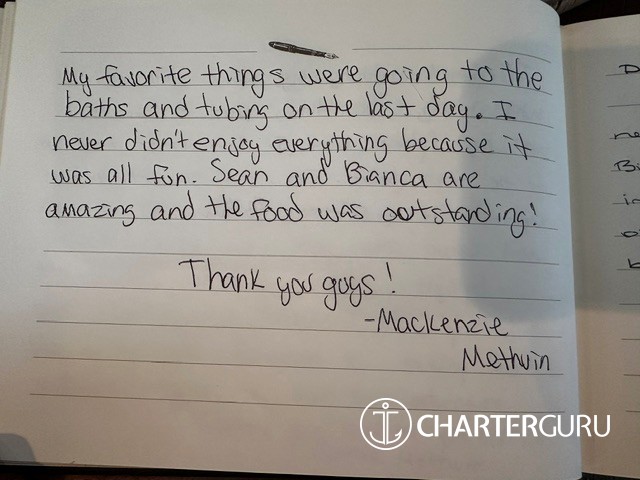 My favorite things were going to the
baths and tubing on the last day. I
never didn't enjoy everything because it
was all fun. Sean and Bianca are
amazing and the food was outstanding!
Thank you guys!
-Mackenzie
Methvin
CHARTERGURU
D
ne
Bi
in
o
k